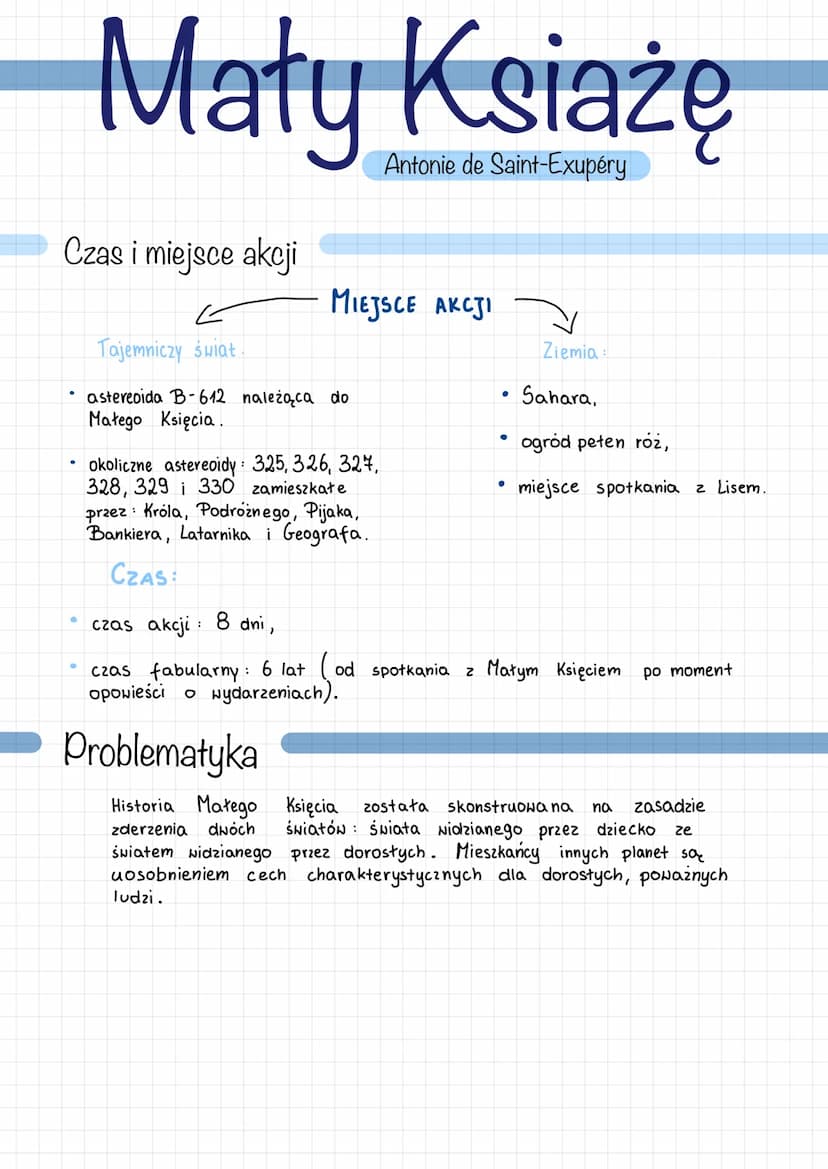 Mały Ksiażę
Antonie de Saint-Exupéry
Czas i miejsce akcji
MIEJSCE AKCJI
Tajemniczy świat.
• astereoida B-612 należąca do
Małego Księcia.
• okoliczne astereoidy: 325, 326, 327,
328, 329 i 330 zamieszkałe
przez: Króla, Podróżnego, Pijaka,
Bankiera, Latarnika i Geografa.
Ziemia:
• Sahara,
• ogród pełen róż,
• miejsce spotkania z Lisem.
CZAS:
• czas akcji: 8 dni,
• czas fabularny: 6 lat (od spotkania z Małym Księciem po moment
opowieści o wydarzeniach).
Problematyka
Historia Małego Księcia została skonstruowana na zasadzie
zderzenia dwóch światów: świata widzianego przez dziecko ze
światem widzianego przez dorosłych. Mieszkańcy innych planet są
uosobnieniem cech charakterystycznych dla dorosłych, poważnych
ludzi.